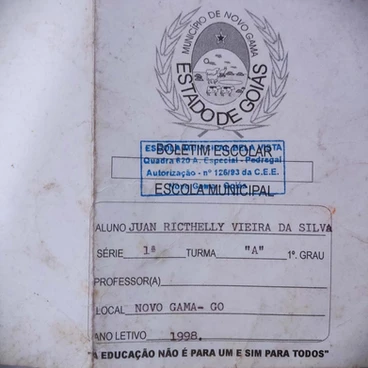 MUNICÍPIO DE NOVO GAMA
ESTADO DE GOIÁS
BOLETIM ESCOLAR
ESCOLA MUNICIPAL BELA VISTA
Quadra 620 A. Especial - Pedregal
Autorização - nº 126/93 da C.E.E.
ESCOLA MUNICIPAL
ALUNO JUAN RICTHELLY VIEIRA DA SILVA
SÉRIE 1ª TURMA "A" 1º GRAU
PROFESSOR(A)
LOCAL NOVO GAMA- GO
ANO LETIVO 1998.
"A EDUCAÇÃO NÃO É PARA UM E SIM PARA TODOS"